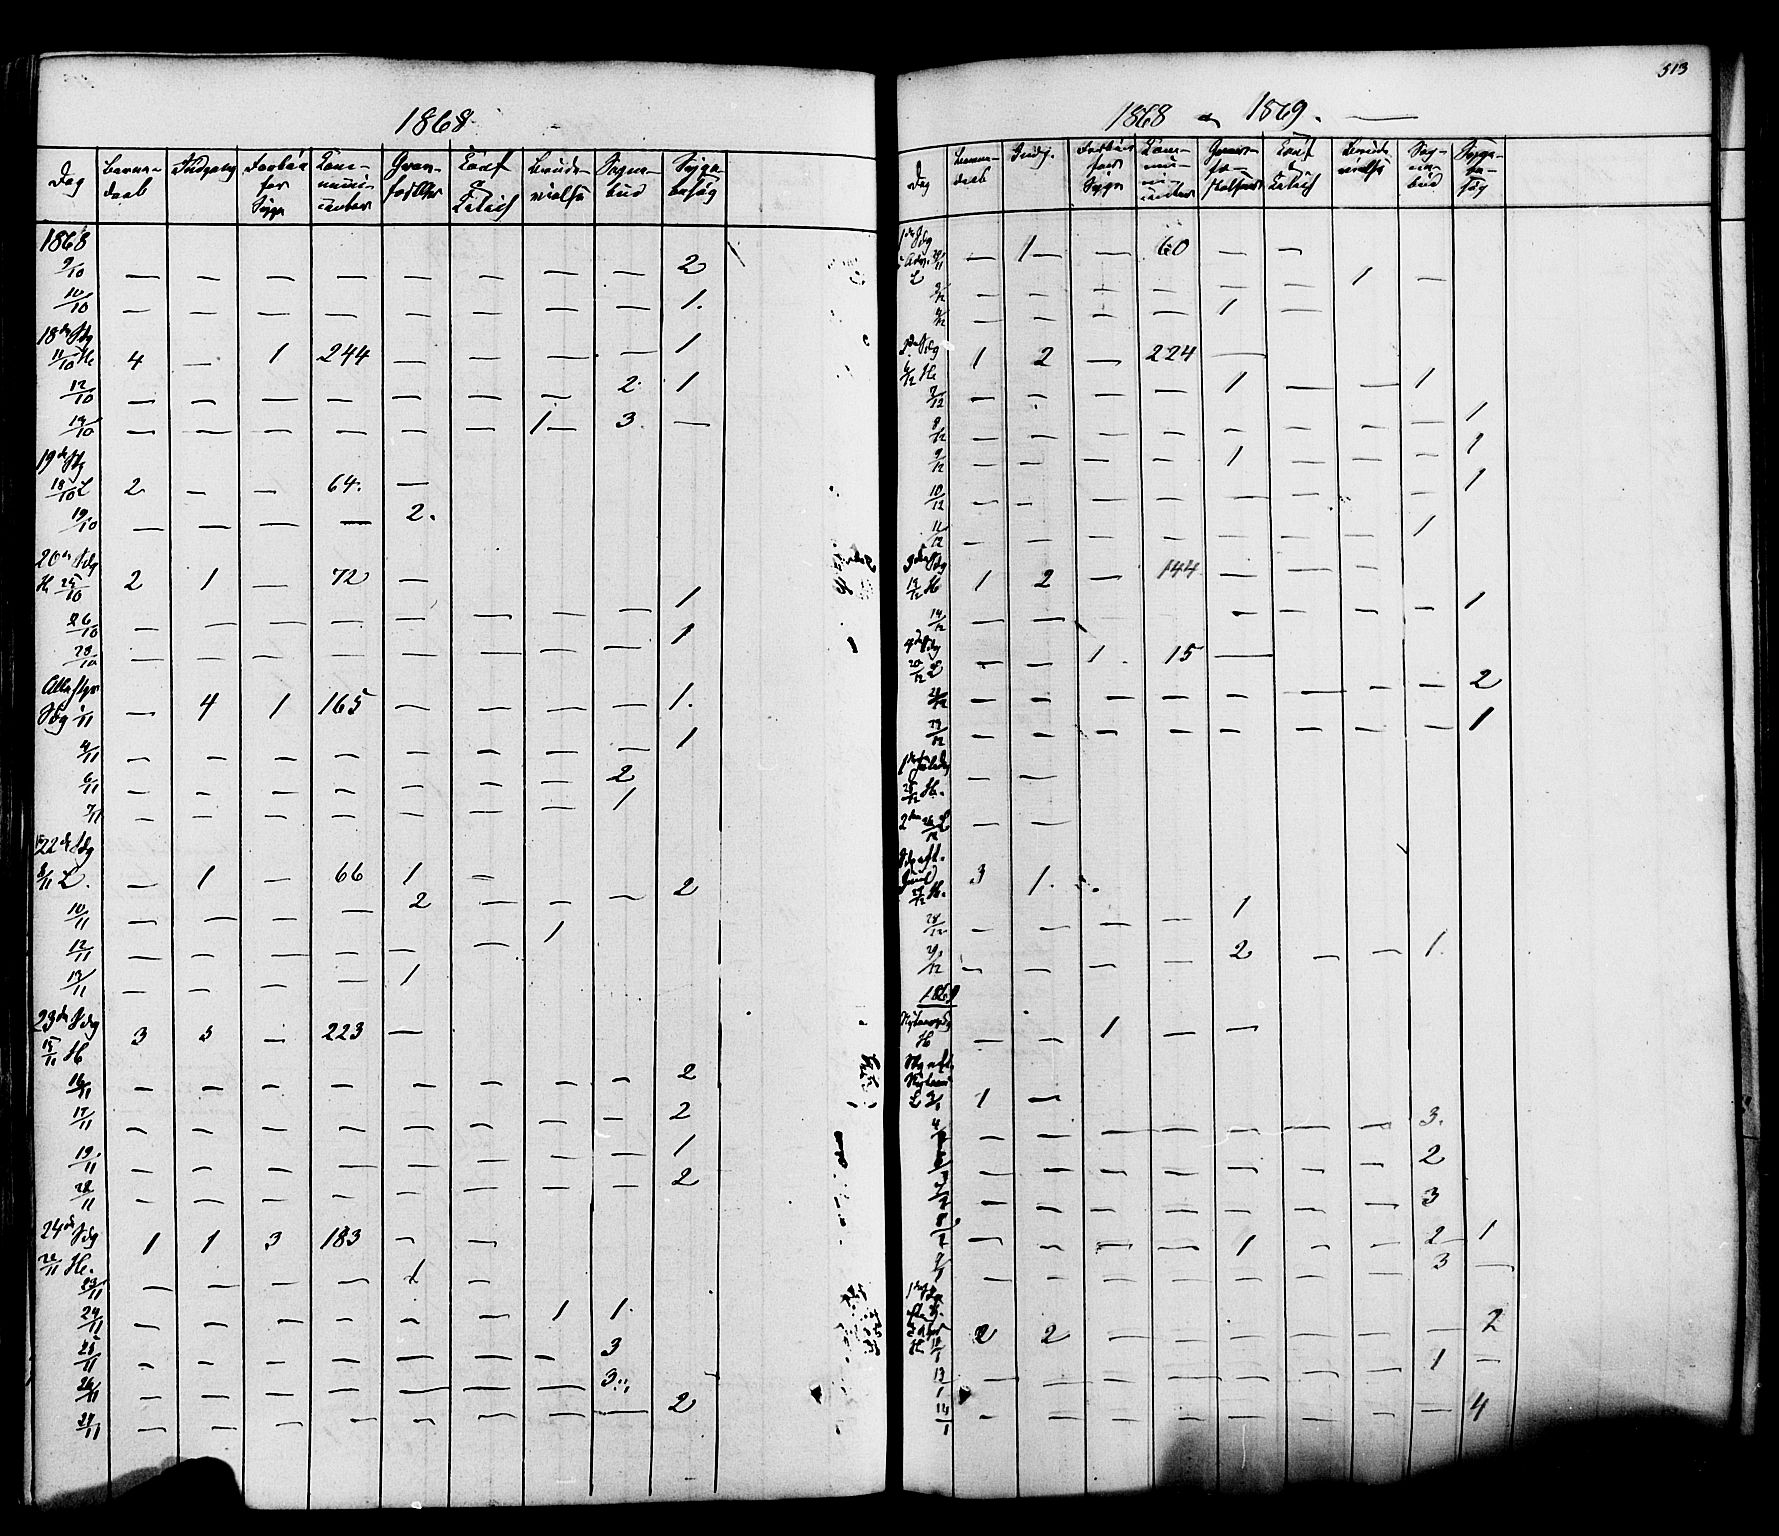 1868
Dag | Barne-daab | Indgaly | Forbøn for Syge | Com-muni-canter | Grav-fæstelser | Catech | Brude-vielse | Sogne-bud | Syge-besøg
1868
9/10 — — — — — — — — 2
10/10 — — — — — — — — 1.
18de Sdg
11/10 H. 4 — 1 244 — — — — 1
12/10 — — — — — — — 2. 1
14/10 — — — — — — 1— 3. —
19de Sdg
18/10 L 2 — — 64. —
19/10 — — — — 2.
20de Sdg
H 25/10 2 1 — 72 —
26/10 — — — — — — — — 1
28/10 — — — — — — — — 1
Allehlgs
Sdg 1/11 — 4 1 165 — — — — 1.
4/11 — — — — — — — — 1
6/11 — — — — — — — 2
7/11 — — — — — — — 1
22de Sdg
8/11 L. — 1 — 66 1 —
10/11 — — — — 2 — — — 2
12/11 — — — — — — 1
13/11 — — — — 1
23de Sdg
15/11 H 3 3 — 223 —
16/11 — — — — — — — — 2
17/11 — — — — — — — — 2
19/11 — — — — — — — — 1
— — — — — — — — 2
24de Sdg
22/11 H. 1 1 3 183 — —
23/11 — — — — 1 —
24/11 — — — — — — 1 1.
25/11 — — — — — — — 3
26/11 — — — — — — — 3
27/11 — — — — — — — — 2
513
1868 1869.
Dag | Barne-daab | Indg. | Forbøn for Syge | Com-mu-ni-canter | Grav-fæ-stelser | Catech | Brude-vielse | Sog-ne-bud | Syge-be-søg
1de Sdg
i Adv. — 1— — 60 — —
L
3/12 — — — — — — 1 —
4/12 — — — — 1 —
2de Sdg
6/12 H. 1 2 — 224 —
7/12 — — — — 1 — — 1
8/12 — — — — — — — — 1
9/12 — — — — 1 — — — 1
10/12 — — — — — — — — 1
11/12 — — — — — — — 1
3de Sdg
13/12 H 1 2 — 144 — — —
14/12 — — — — — — — 1
4de Sdg
20/12 L — — 1. 15 —
— — — — — — — — 2
— — — — — — — — 1
1ste Juledg
25/12 H. — —
2den 26/12 L — —
Sdg eft.
Juul
27/12 H. 3 1.
28/12 — — — — 1
29/12 — — — — 2 — — 1.
1869
Nytaarsdg
H — — 1 — —
Sdg eft.
Nytaar
L 3/1 1 —
4/1 — — — — — — — 3.
— — — — — — — 2
— — — — — — — 3
— — — — 1 — — 2 1
— — — — — — — 3 —
1ste Sdg
H 10/1 2 2 — — — — — — 2
13/1 — — — — — — — 1 —
14/1 — — — — — — — — 4